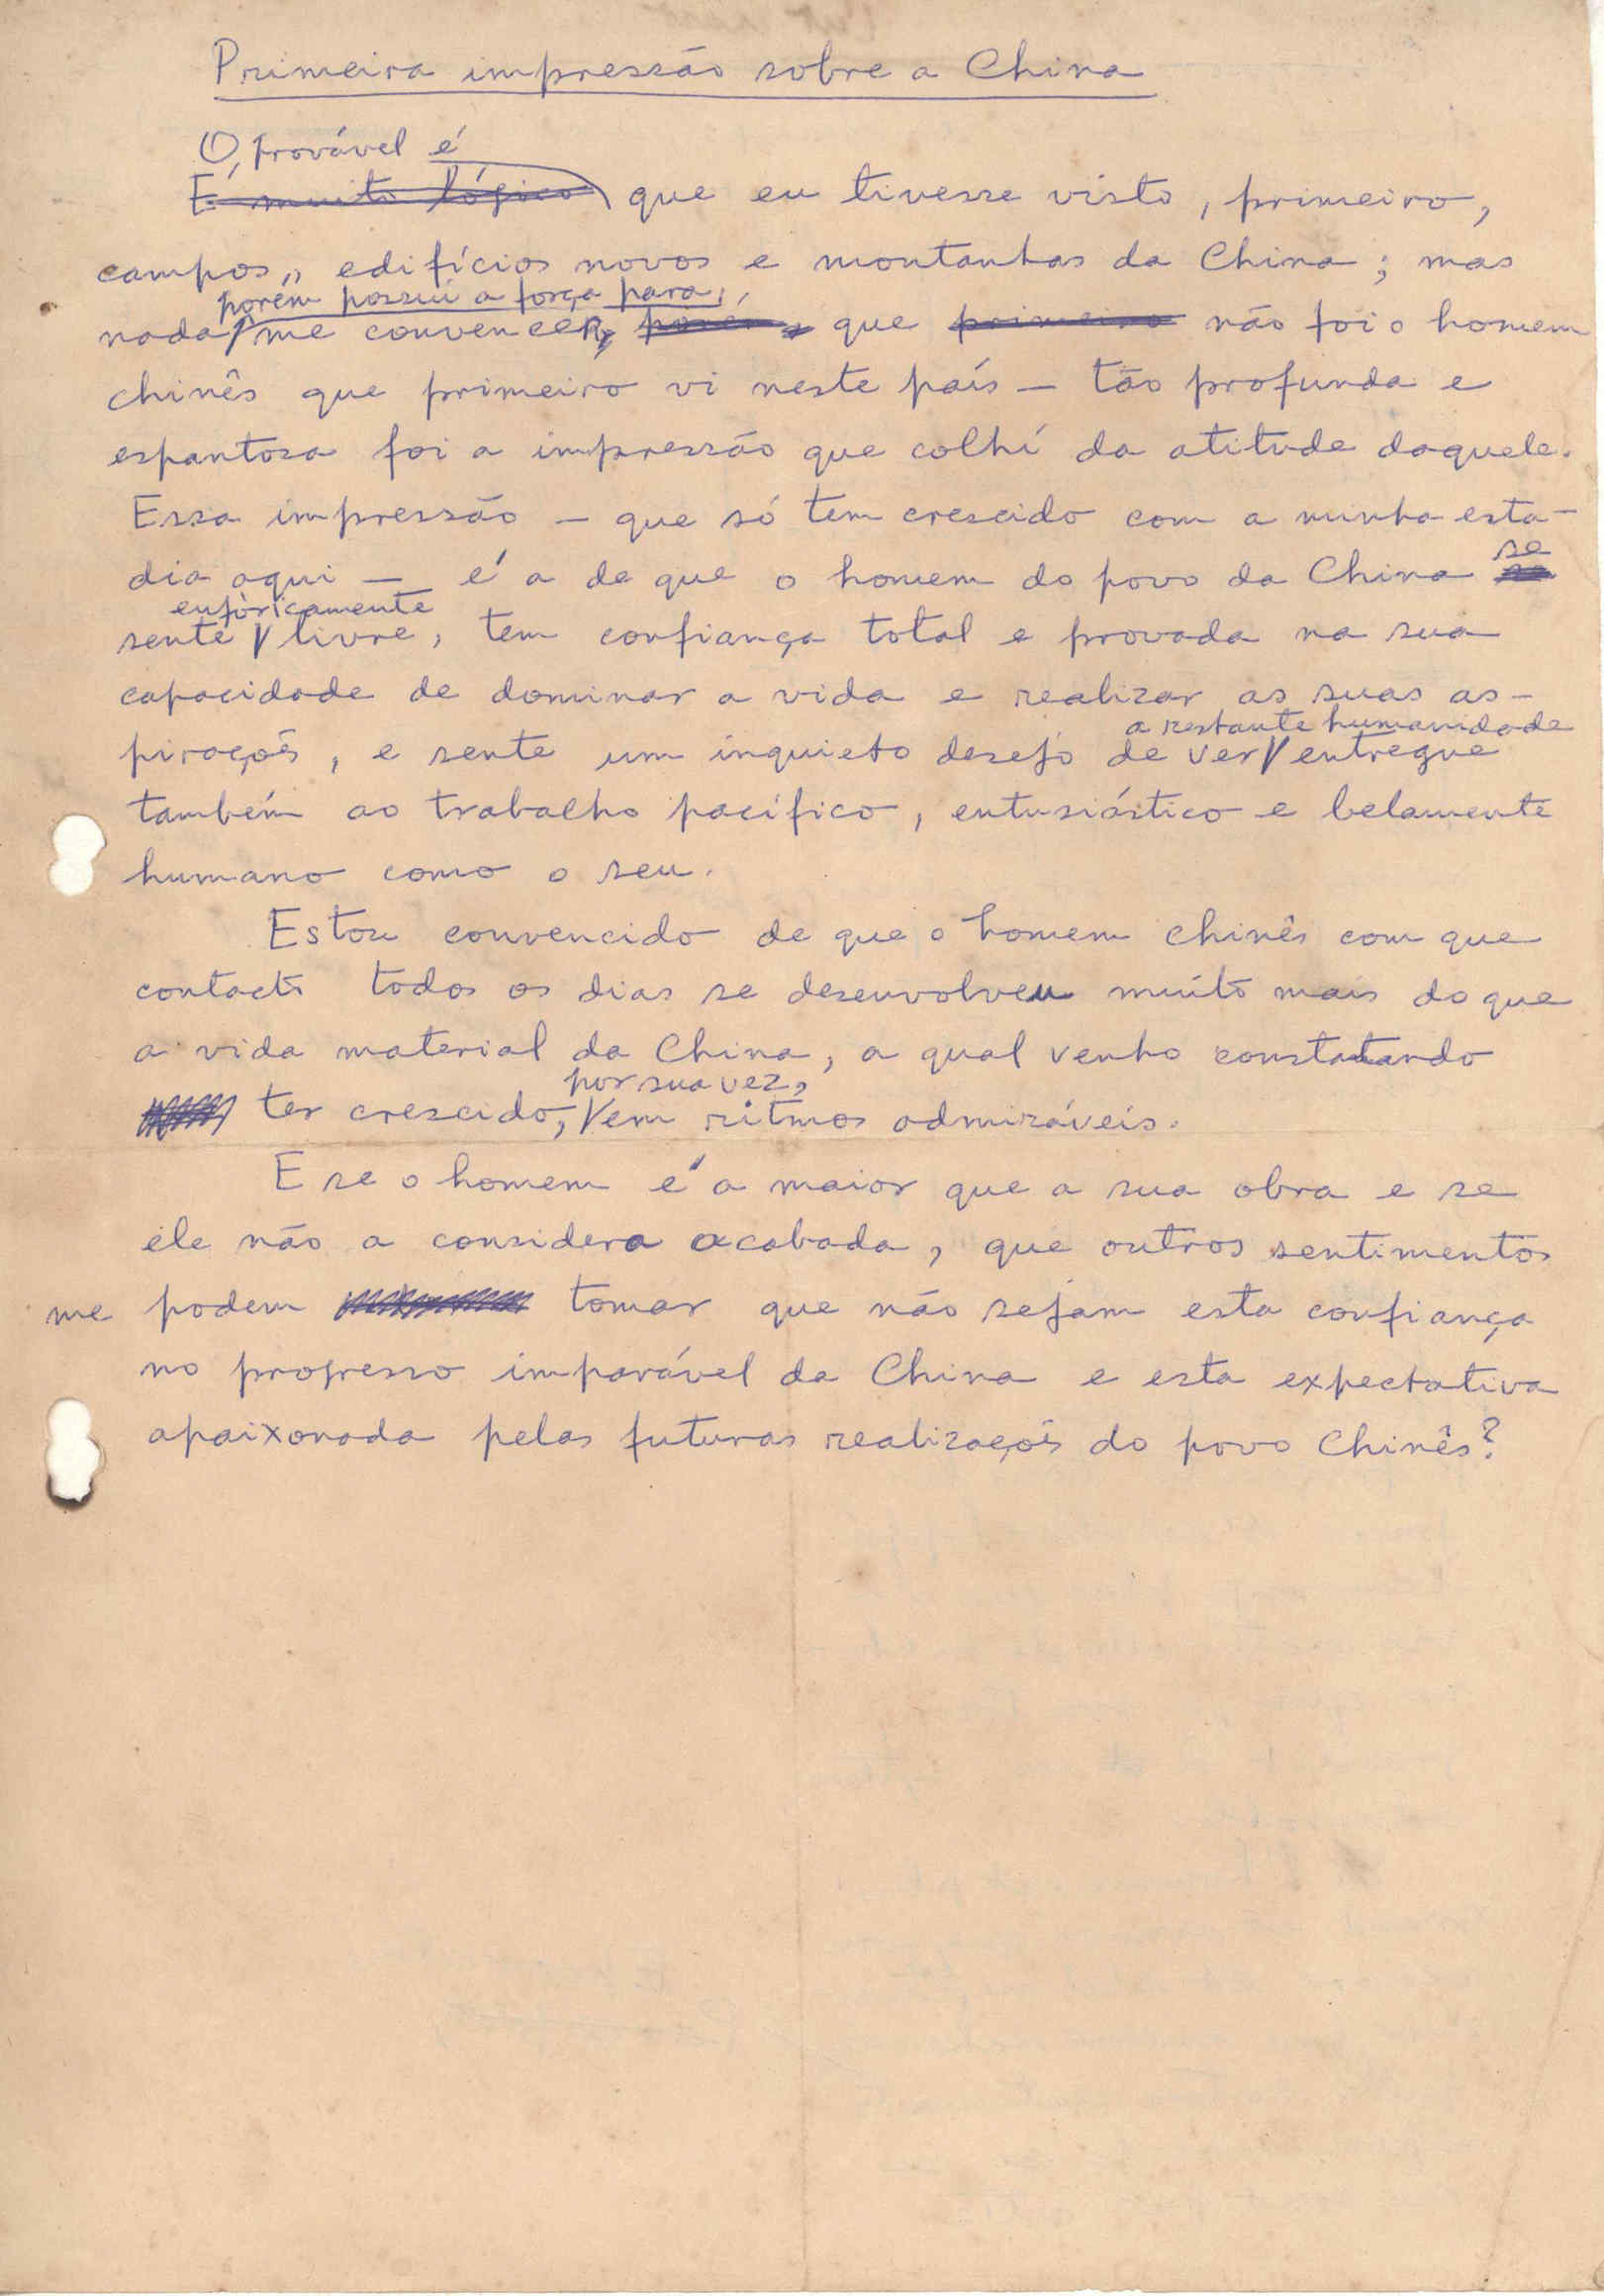 Primeira impressão sobre a China
O provável é
É muito lógico que eu tivesse visto, primeiro,
campos, edifícios novos e montanhas da China; mas
porém possui a força para
nada me convencer, porém, que primeiro não foi o homem
chinês que primeiro vi neste país — tão profunda e
espantosa foi a impressão que colhí da atitude daquele.
Essa impressão — que só tem crescido com a minha esta-
se
dia aqui — é a de que o homem do povo da China se
eufòricamente
sente livre, tem confiança total e provada na sua
capacidade de dominar a vida e realizar as suas as-
a restante humanidade
piraçõs, e sente um inquieto desejo de ver entregue
também ao trabalho pacífico, entusiástico e belamente
humano como o seu.
Estou convencido de que o homem chinês com que
contacto todos os dias se desenvolveu muito mais do que
a vida material da China, a qual venho constatando
por sua vez,
ter crescido, em ritmos admiráveis.
E se o homem é a maior que a sua obra e se
êle não a considera acabada, que outros sentimentos
me podem tomar que não sejam esta confiança
no progresso imparável da China e esta expectativa
apaixonada pelas futuras realizaçõs do povo Chinês?